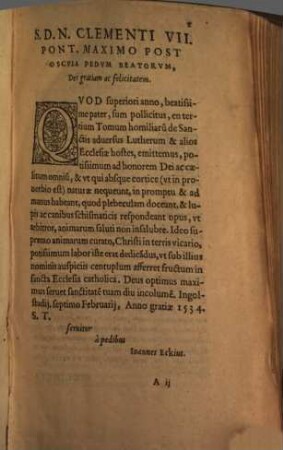 S.D.N. CLEMENTI VII.
PONT. MAXIMO POST
OSCVLA PEDVM BEATORVM,
Dei gratiam ac felicitatem.
QVOD superiori anno, beatissi-
me pater, sum pollicitus, en ter-
tium Tomum homiliarũ de San-
ctis aduersus Lutherum & alios
Ecclesiæ hostes, emittemus, po-
tissimum ad honorem Dei ac cæ-
litum omniũ, & vt qui absque cortice (vt in pro-
uerbio est) natare nequeunt, in promptu & ad
manus habeant, quod plebeculam doceant, & lu-
pis ac canibus schismaticis respondeant opus, vt
arbitror, animarum saluti non insalubre. Ideo su-
premo animarum curato, Christi in terris vicario,
potissimum labor iste erat dedicãdus, vt sub illius
nominis auspicijs centuplum afferret fructum in
sancta Ecclesia catholica. Deus optimus maxi-
mus seruet sanctitatẽ tuam diu incolumẽ. Ingol-
stadij, septimo Februarij, Anno gratiæ 1534.
S. T.
seruitor
à pedibus
Ioannes Eckius.
A ij